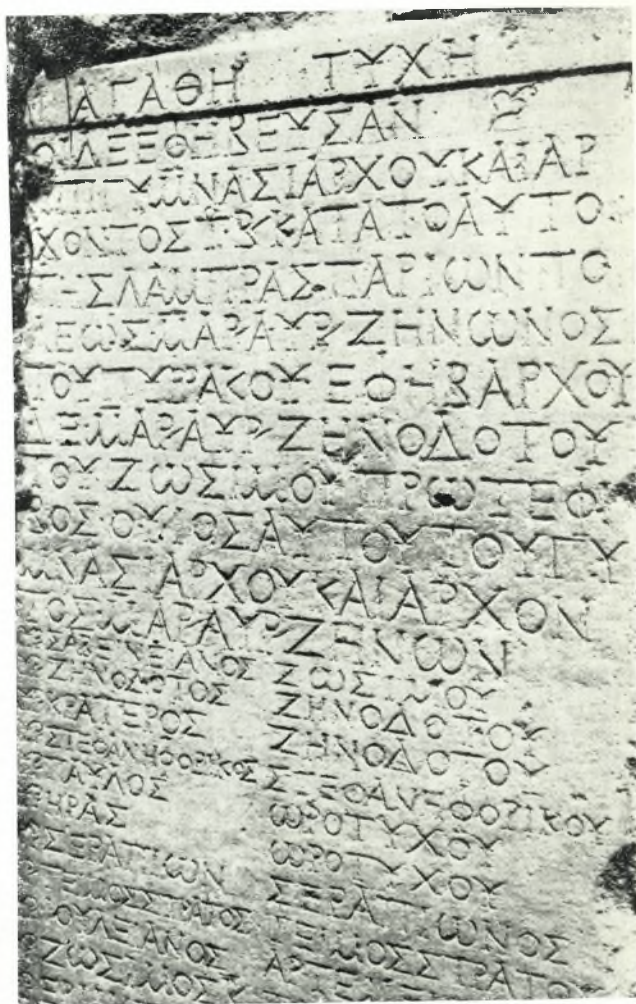 ΑΓΑΘΗ ΤΥΧΗ
ΟΙΔΕΕΦΗΒΕΥΣΑΝ
ΕΠΙΓΥΜΝΑΣΙΑΡΧΟΥΚΑΙΑΡ
ΧΟΝΤΟΣ ΚΑΤΑΤΟΑΥΤΟ
ΤΗΣΛΑΜΠΡΑΣΠΑΡΙΩΝΠΟ
ΛΕΩΣΜΑΡ ΑΥΡ ΖΗΝΩΝΟΣ
ΤΟΥ ΕΦΗΒΑΡΧΟΥ
ΔΕΜΑΡ ΑΥΡ ΖΗΝΟΔΟΤΟΥ
ΤΟΥΖΩΣΙΜΟΥΠΡΩΤΕΦΗ
ΒΟΣΟΥΙΟΣΑΥΤΟΥΤΟΥΓΥ
ΜΝΑΣΙΑΡΧΟΥΚΑΙΑΡΧΟΝ
ΤΟΣΜΑΡ ΑΥΡ ΖΗΝΩΝ
ΖΩΣΙΜΟΥ
ΖΗΝΟΔΟΤΟΣ ΖΗΝΟΔΟΤΟΥ
ΚΡΑΤΕΡΟΣ ΖΗΝΟΔΟΤΟΥ
ΣΤΕΦΑΝΗΦΟΡΙΚΟΣ ΣΤΕΦΑΝΗΦΟΡΙΚΟΥ
ΠΑΥΛΟΣ ΩΡΟΤΥΧΟΥ
ΘΗΡΑΣ ΩΡΟΤΥΧΟΥ
ΣΕΡΑΠΙΩΝ ΣΕΡΑΠΙΩΝΟΣ
ΤΕΙΜΟΣΣΤΡΑΤΟΣ ΤΕΙΜΟΣΣΤΡΑΤΟΥ
ΖΩΣΙΜΟΣ